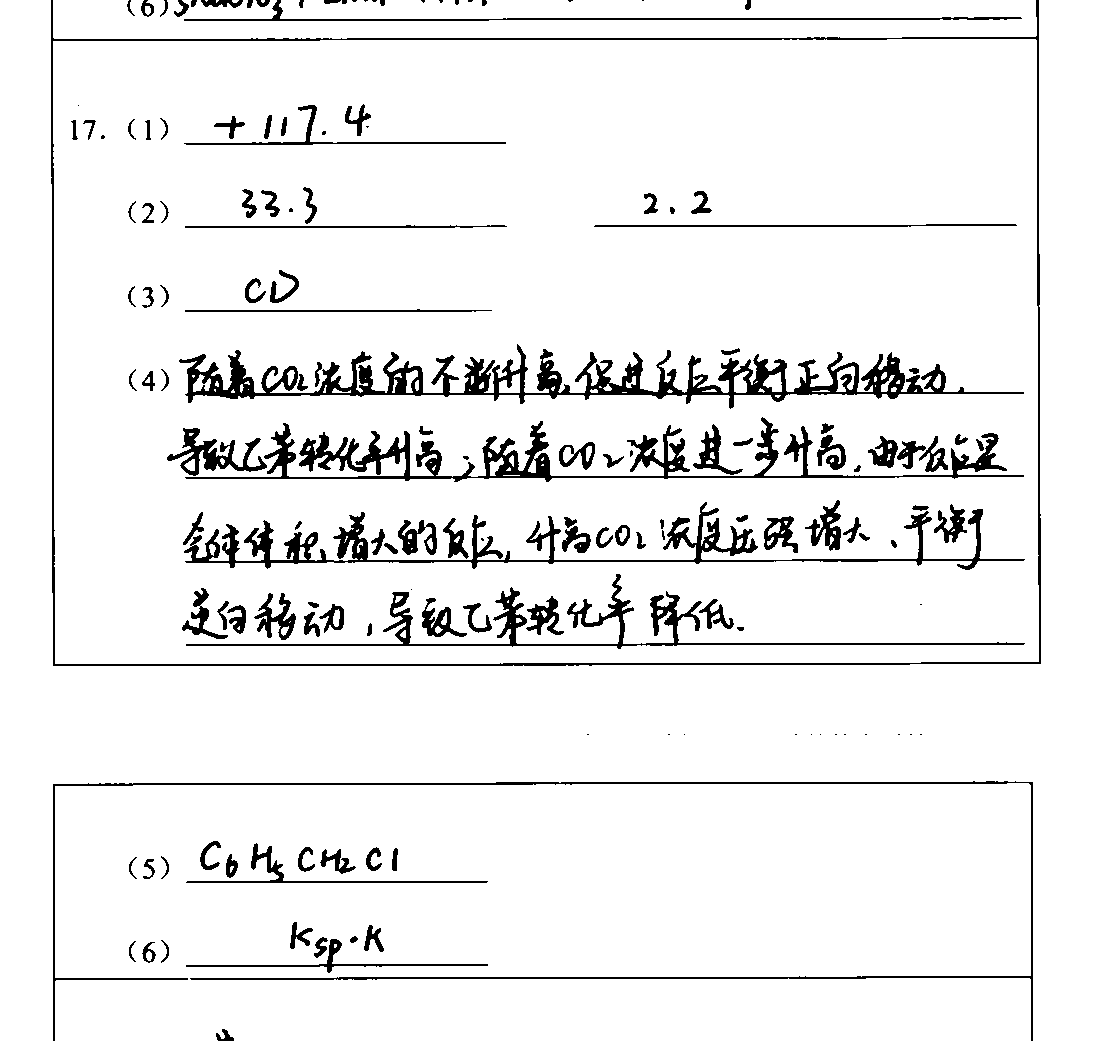 (6)
17. (1) +117.4
(2) 33.3 2.2
(3) CD
(4) 随着CO₂浓度的不断升高,促进反应平衡正向移动,
导致乙苯转化率升高;随着CO₂浓度进一步升高,由于反应是
气体体积增大的反应,升高CO₂浓度压强增大、平衡
逆向移动,导致乙苯转化率降低.
(5) C₆H₅CH₂Cl
(6) Ksp·K